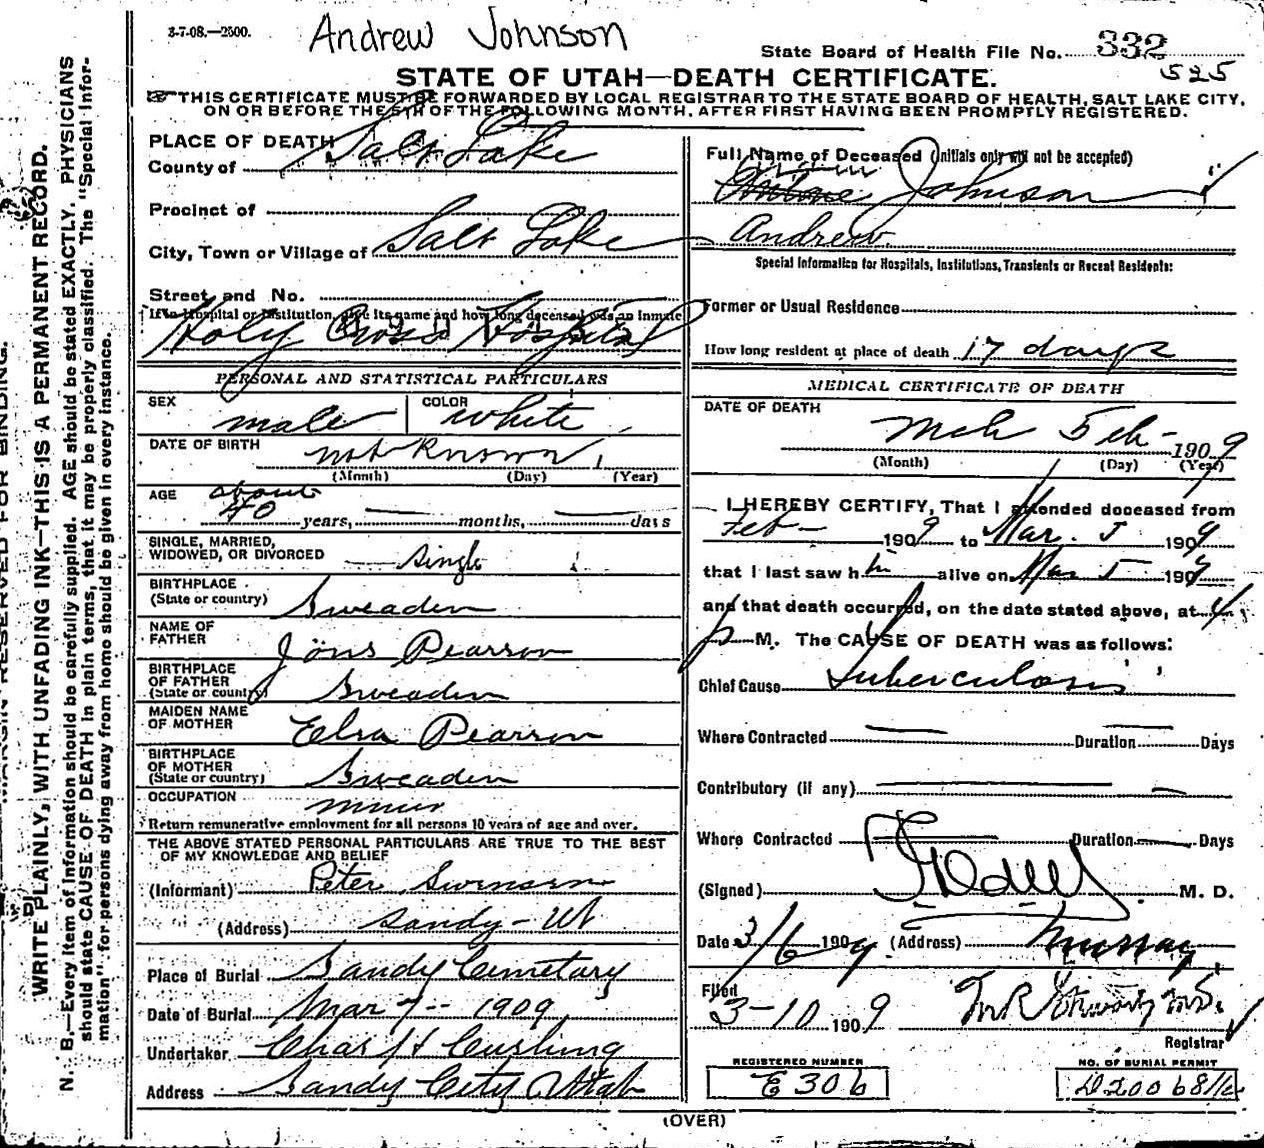 3-7-08.—2500.
Andrew Johnson
State Board of Health File No. 332
525
STATE OF UTAH—DEATH CERTIFICATE.
THIS CERTIFICATE MUST BE FORWARDED BY LOCAL REGISTRAR TO THE STATE BOARD OF HEALTH, SALT LAKE CITY,
ON OR BEFORE THE 5TH OF THE FOLLOWING MONTH, AFTER FIRST HAVING BEEN PROMPTLY REGISTERED.
PLACE OF DEATH
County of Salt Lake
Precinct of
City, Town or Village of Salt Lake
Street and No.
If in Hospital or Institution, give its name and how long deceased was an inmate
Holy Cross Hospital
PERSONAL AND STATISTICAL PARTICULARS
SEX male COLOR white
DATE OF BIRTH not Known 1
(Month) (Day) (Year)
AGE about
40 years, months, days
SINGLE, MARRIED,
WIDOWED, OR DIVORCED single
BIRTHPLACE
(State or country) Sweaden
NAME OF
FATHER Jöns Pearson
BIRTHPLACE
OF FATHER
(State or country) Sweaden
MAIDEN NAME
OF MOTHER Elsa Pearson
BIRTHPLACE
OF MOTHER
(State or country) Sweaden
OCCUPATION miner
Return remunerative employment for all persons 10 years of age and over.
THE ABOVE STATED PERSONAL PARTICULARS ARE TRUE TO THE BEST
OF MY KNOWLEDGE AND BELIEF
(Informant) Peter Swenson
(Address) Sandy - Ut
Place of Burial Sandy Cemetary
Date of Burial Mar 7 - 1909
Undertaker Chas H Cushing
Address Sandy City Utah
Full Name of Deceased (Initials only will not be accepted)
Johnson
Andrew
Special Information for Hospitals, Institutions, Transients or Recent Residents:
Former or Usual Residence
How long resident at place of death 17 days
MEDICAL CERTIFICATE OF DEATH
DATE OF DEATH
Mch 5th - 1909
(Month) (Day) (Year)
I HEREBY CERTIFY, That I attended deceased from
Feb - 1909 to Mar. 5 1909
that I last saw h im alive on Mar 5 1909
and that death occurred, on the date stated above, at 4
p M. The CAUSE OF DEATH was as follows:
Chief Cause tuberculosis
Where Contracted Duration Days
Contributory (if any)
Where Contracted Duration Days
(Signed) M. D.
Date 3/6 1909 (Address) Murray
Filed
3-10 1909
Registrar
REGISTERED NUMBER
E306
NO. OF BURIAL PERMIT
(OVER)
MARGIN RESERVED FOR BINDING.
WRITE PLAINLY, WITH UNFADING INK—THIS IS A PERMANENT RECORD.
N. B.—Every item of information should be carefully supplied. AGE should be stated EXACTLY. PHYSICIANS
should state CAUSE OF DEATH in plain terms, that it may be properly classified. The "Special Infor-
mation" for persons dying away from home should be given in every instance.